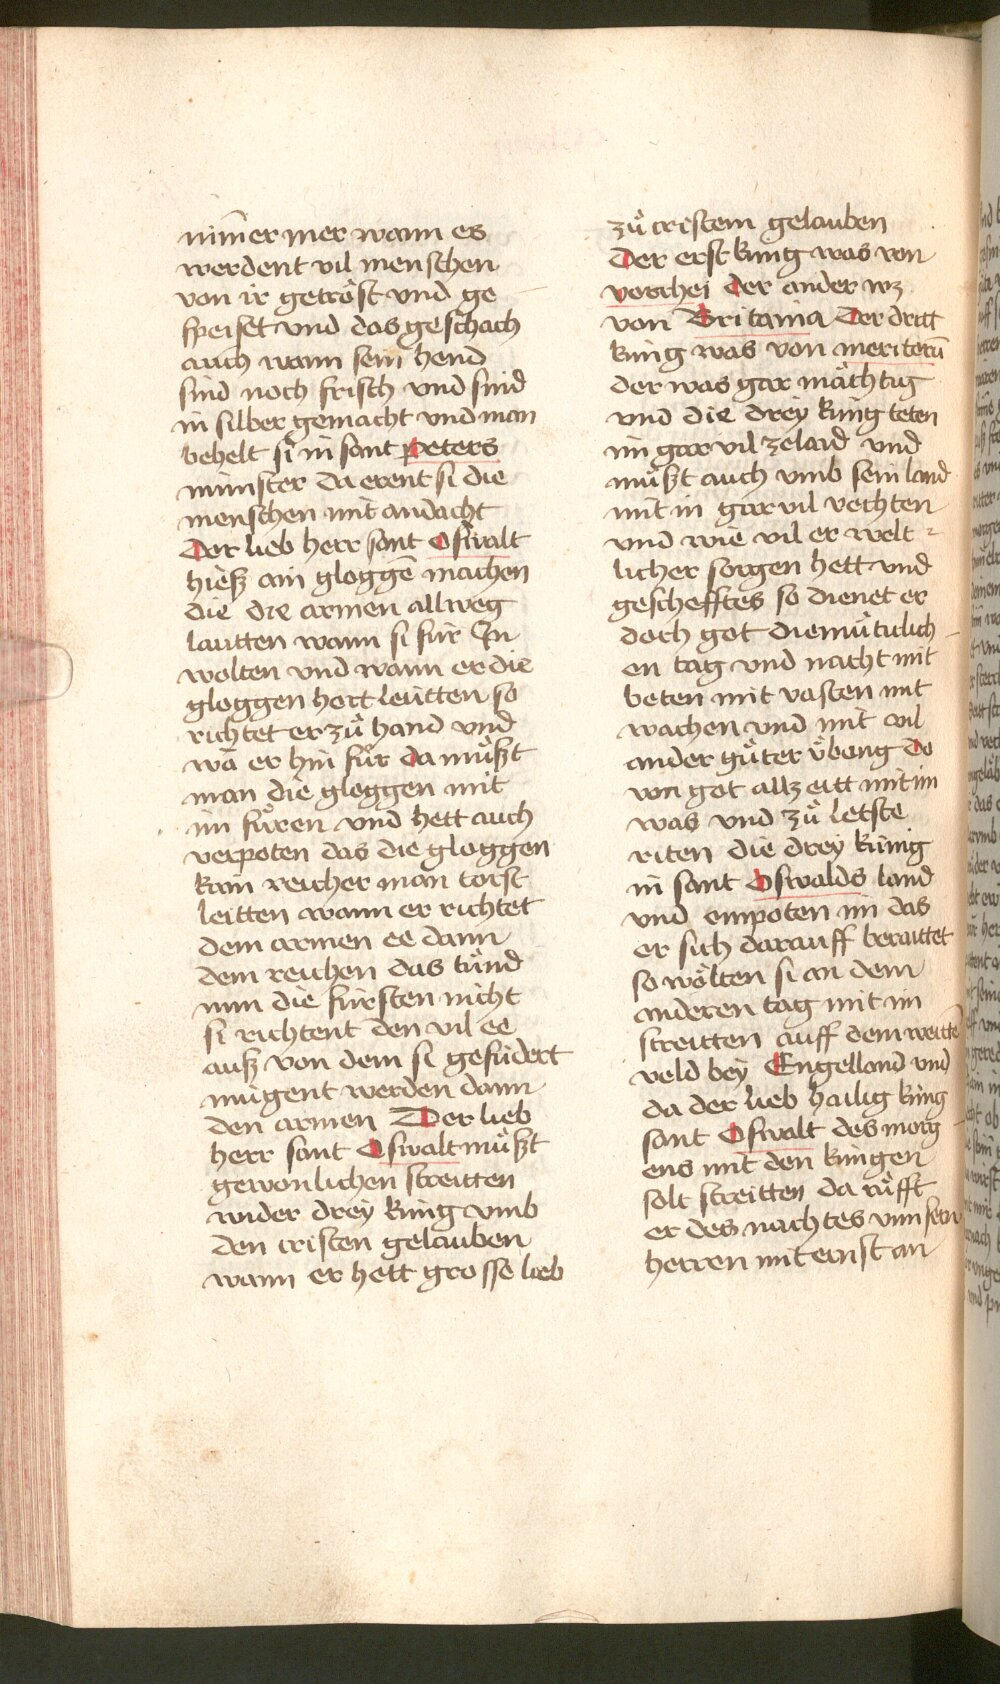 nim̄er mer wann es
werdent vil menschen
von ir getröst vnd ge
speiset vnd das geschach
auch wann sein hend
sind noch frisch vnd sind
in silber gemacht vnd man
behelt si in sant Peters
münster da erent si die
menschen mit andacht
Der lieb herr sant Oswalt
hieß ain glogge machen
die die armen allweg
lautten wann si für In
wolten vnd wann er die
gloggen hort leütten so
richtet er zů hand vnd
wā er hin fůr da můßt
man die gloggen mit
im fůren vnd hett auch
verpoten das die gloggen
kain reicher man torst
leitten wann er richtet
dem armen ee dann
dem reichen das tůnd
nun die fürsten nicht
si richtent den vil ee
auß von dem si gefüdert
mügent werden dann
den armen Der lieb
herr sant Oswalt můßt
gewonlichen streitten
wider drey küng vmb
den cristen gelauben
wann er hett grosse lieb
zů cristem gelauben
Der erst küng was von
verchei Der ander wz
von Britania Der dritt
küng was von meriterū
der was gar mächtig
vnd die drey küng teten
im gar vil ze laid vnd
můßt auch vmb sein land
mit in gar vil vechten
vnd wie vil er welt
licher sorgen hett vnd
geschefftes so dienet er
doch got diemůtiklich
en tag vnd nacht mit
beten mit vasten mit
wachen vnd mit vil
ander gůter ůbung Do
von got allzeitt mit im
was vnd zů letste
riten die drey künig
in sant Oswalds land
vnd empoten im das
er sich darauff beraittet
so wölten si an dem
anderen tag mit im
streitten auff dem weittē
veld bey Engelland vnd
da der lieb hailig küng
sant Oswalt des morg
ens mit den küngen
solt streitten da růfft
er des nachtes vnnsern
herren mit ernst an